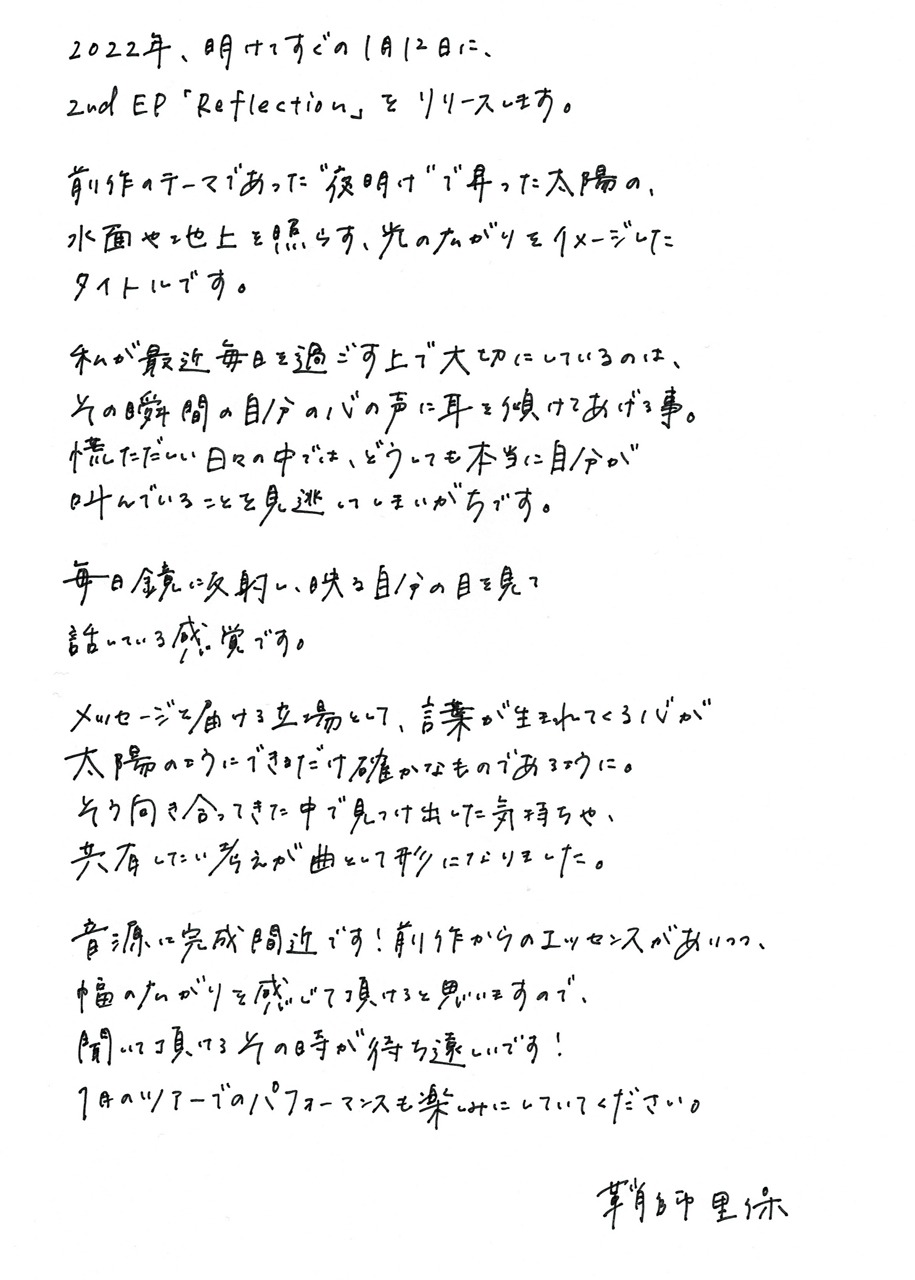 2022年、明けてすぐの1月12日に、
2nd EP「Reflection」をリリースします。
前作のテーマであった"夜明け"で昇った太陽の、
水面や地上を照らす、光の広がりをイメージした
タイトルです。
私が最近毎日を過ごす上で大切にしているのは、
その瞬間の自分の心の声に耳を傾けてあげる事。
慌ただしい日々の中では、どうしても本当に自分が
叫んでいることを見逃してしまいがちです。
毎日鏡に反射し、映る自分の目を見て
話している感覚です。
メッセージを届ける立場として、言葉が生まれてくる心が
太陽のようにできるだけ確かなものであるように。
そう向き合ってきた中で見つけ出した気持ちや、
共有したい考えが曲として形になりました。
音源は完成間近です！前作からのエッセンスがありつつ、
幅の広がりを感じて頂けると思いますので、
聞いて頂けるその時が待ち遠しいです！
1月のツアーでのパフォーマンスも楽しみにしていてください。
鞘師里保